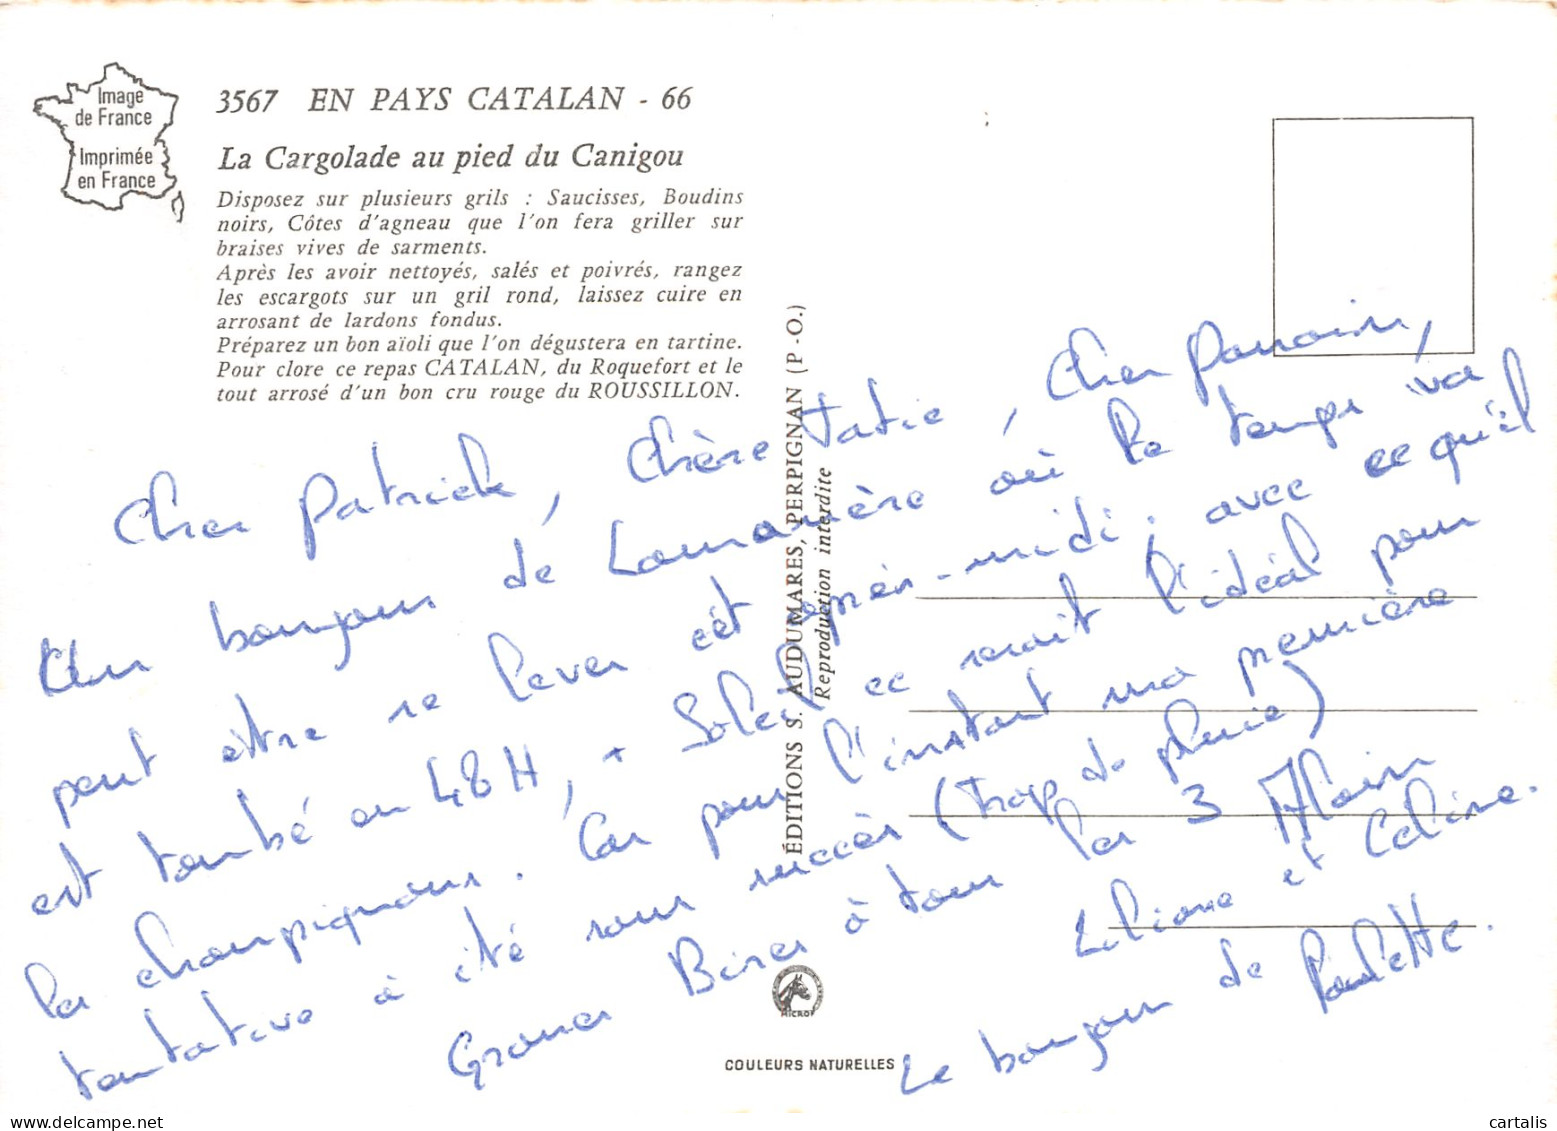 Image
de France
Imprimée
en France
3567 EN PAYS CATALAN - 66
La Cargolade au pied du Canigou
Disposez sur plusieurs grils : Saucisses, Boudins
noirs, Côtes d'agneau que l'on fera griller sur
braises vives de sarments.
Après les avoir nettoyés, salés et poivrés, rangez
les escargots sur un gril rond, laissez cuire en
arrosant de lardons fondus.
Préparez un bon aïoli que l'on dégustera en tartine.
Pour clore ce repas CATALAN, du Roquefort et le
tout arrosé d'un bon cru rouge du ROUSSILLON.
ÉDITIONS S. AUDUMARES, PERPIGNAN (P.-O.)
Reproduction interdite
Cher Patrick, Chère Tatie, Cher Parrain,
Un bonjour de où le temps va
peut être se lever cet après-midi. avec ce qu'il
est tombé en 48H, + Soleil ce serait l'idéal pour
les champignons. Car pour l'instant ma première
tentative à été sans succès (trop de pluie)
Grosses Bises à tous les 3 Alain
Liliane et Céline.
Le bonjour de Paulette.
MICRO
COULEURS NATURELLES
cartalis